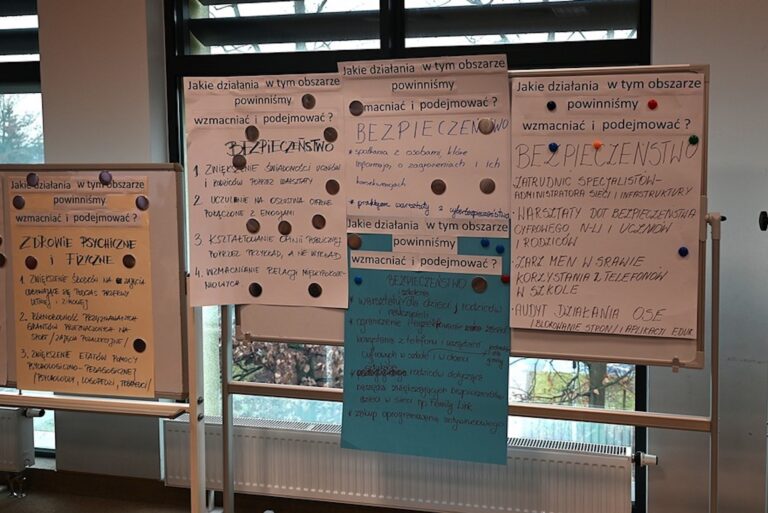 Jakie działania w tym obszarze
powinniśmy
wzmacniać i podejmować ?
ZDROWIE PSYCHICZNE
I FIZYCZNE
1. ZWIĘKSZENIE ŚRODKÓW NA
2. RÓWNOMIERNOŚĆ PRZYZNAWANYCH
GRANTÓW NA
SPORT / ZAJĘCIA POZALEKCYJNE /
3. ZWIĘKSZENIE ETATÓW POMOCY
PSYCHOLOGICZNO - PEDAGOGICZNEJ
/ PSYCHOLODZY, LOGOPEDZI, TERAPEUCI /
Jakie działania w tym obszarze
powinniśmy
wzmacniać i podejmować ?
BEZPIECZEŃSTWO
1. ZWIĘKSZENIE ŚWIADOMOŚCI UCZNIÓW
I RODZICÓW POPRZEZ WARSZTATY
2. UCZULANIE NA
POŁĄCZONE Z EMOCJAMI
3. KSZTAŁTOWANIE OPINII PUBLICZNEJ
POPRZEZ PRZYKŁAD, A NIE WYKŁAD
4. WZMACNIANIE RELACJI
Jakie działania w tym obszarze
powinniśmy
wzmacniać i podejmować ?
BEZPIECZEŃSTWO
• spotkania z osobami, które
informują o zagrożeniach i ich
konsekwencjach
• praktyczne warsztaty z cyberbezpieczeństwa
Jakie działania w tym obszarze
powinniśmy
wzmacniać i podejmować ?
BEZPIECZEŃSTWO
szkolenia
• warsztaty dla dzieci, rodziców
i nauczycieli
• ograniczenie
korzystania z telefonu i urządzeń
cyfrowych w szkole i w domu
rodziców dotyczące
narzędzia zwiększających bezpieczeństwo
dzieci w sieci np. Family Link
• zakup oprogramowania antywirusowego
Jakie działania w tym obszarze
powinniśmy
wzmacniać i podejmować ?
BEZPIECZEŃSTWO
• ZATRUDNIĆ SPECJALISTÓW-
ADMINISTRATORA SIECI I INFRASTRUKTURY
• WARSZTATY DOT. BEZPIECZEŃSTWA
CYFROWEGO, N-LI I UCZNIÓW
I RODZICÓW
W SPRAWIE
KORZYSTANIA Z TELEFONÓW
W SZKOLE
• AUDYT DZIAŁANIA OSE
I BLOKOWANIE STRON / I APLIKACJI EDUK